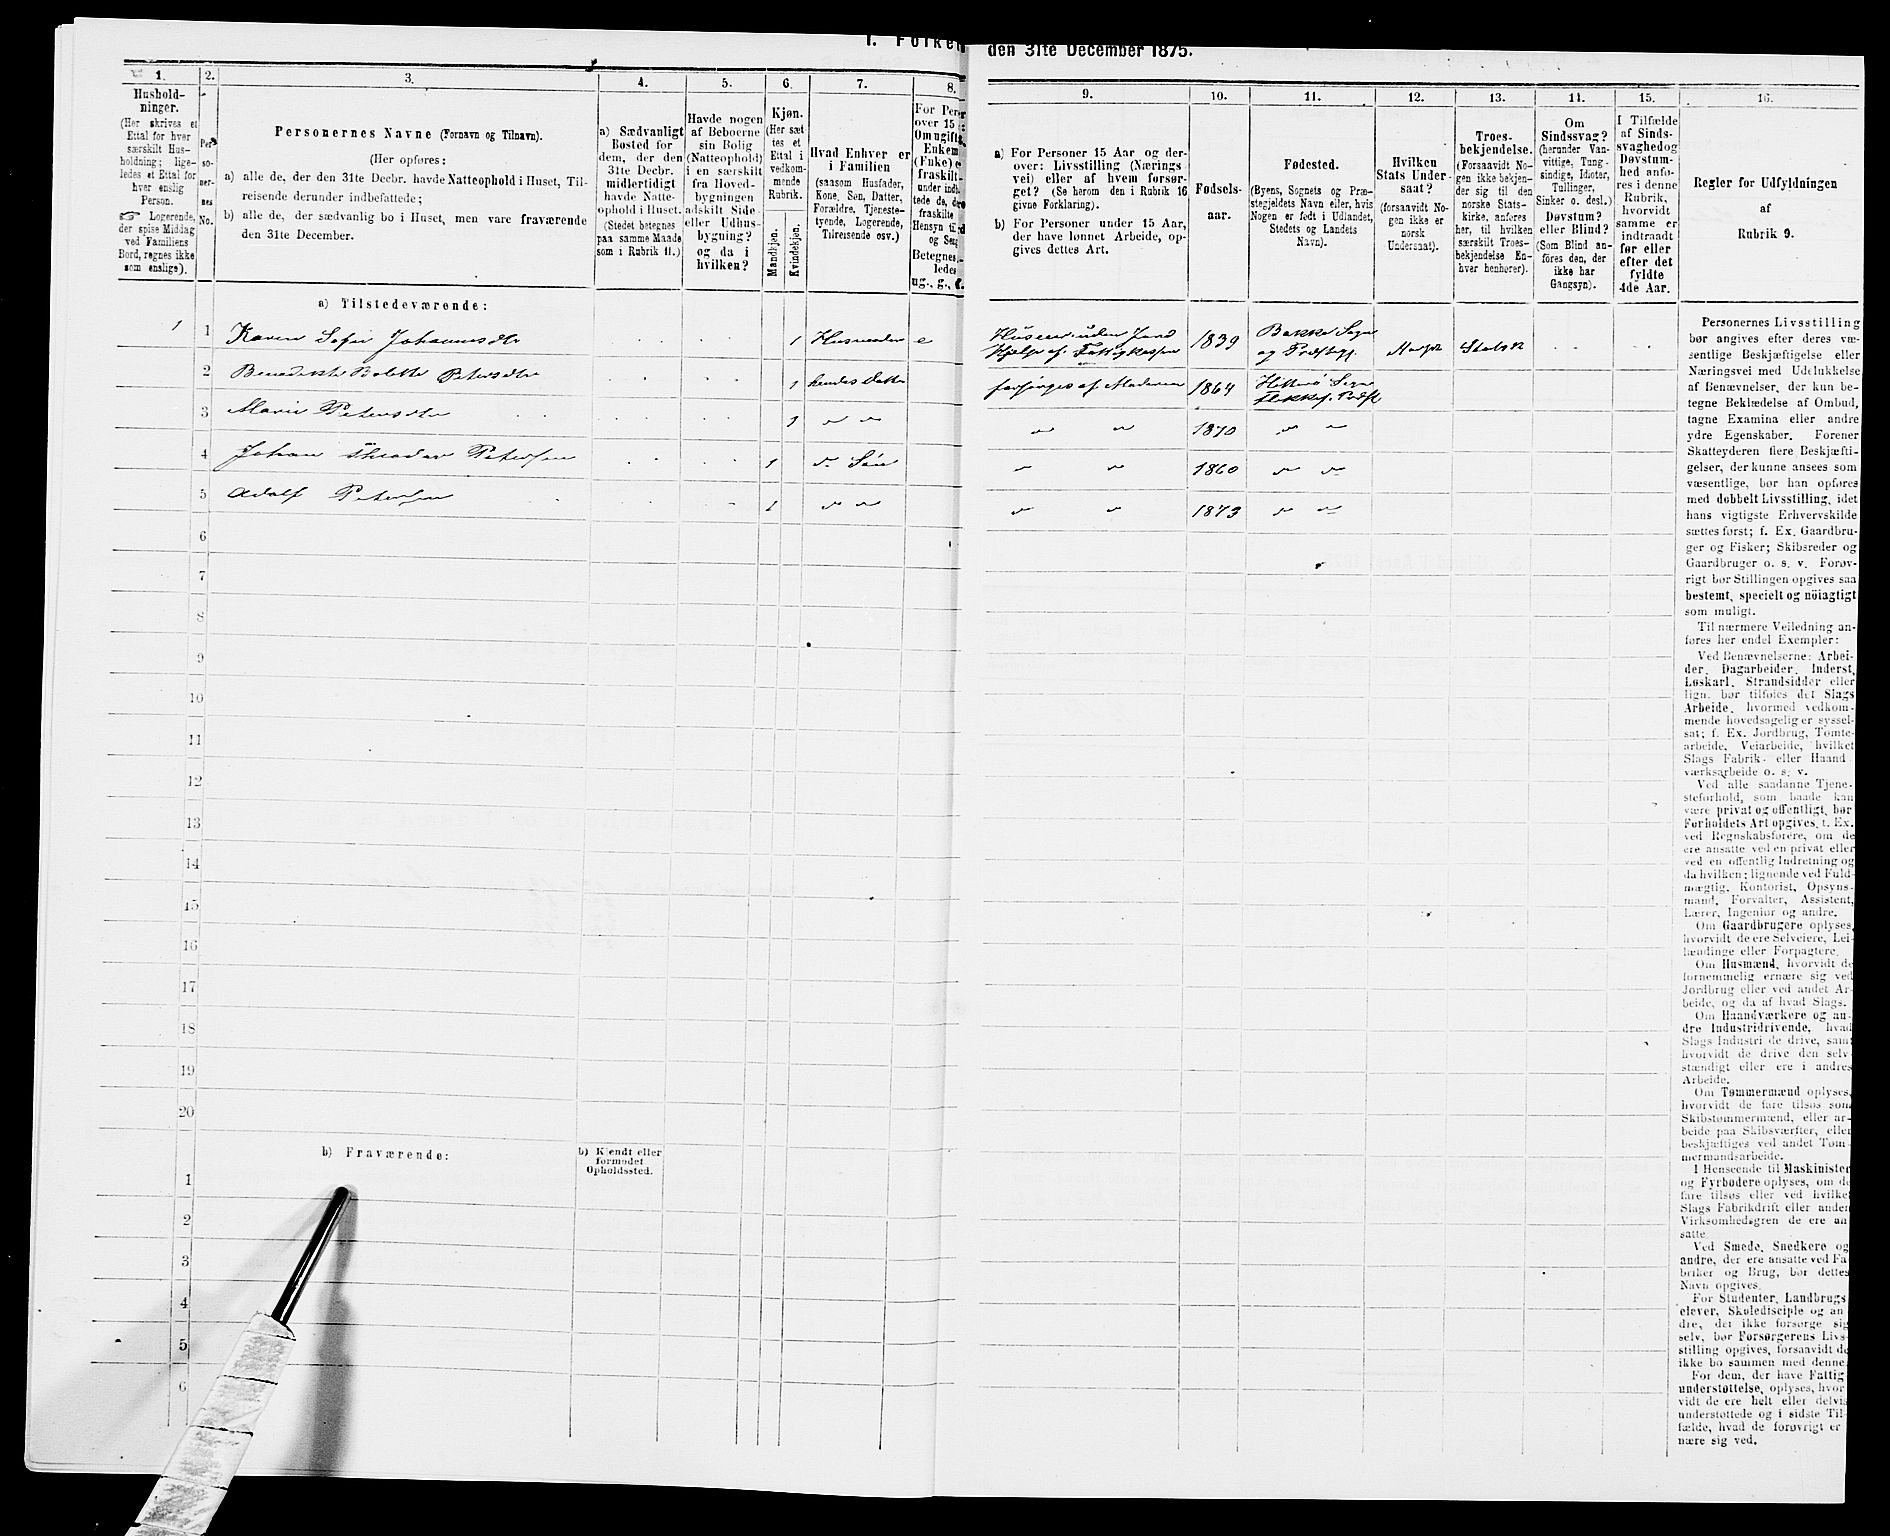 I. Folke
den 31te December 1875.
1. 2. 3. 4. 5. 6. 7. 8. 9. 10. 11. 12. 13. 14. 15. 16.
Hushold-
ninger.
(Her skrives et
Ettal for hver
særskilt Hus-
holdning; lige-
ledes et Ettal for
hver enslig
Person.
☞ Logerende,
der spise Middag
ved Familiens
Bord, regnes ikke
som enslige).
Per-
so-
ner-
nes
No.
Personernes Navne (Fornavn og Tilnavn).
(Her opføres:
a) alle de, der den 31te Decbr. havde Natteophold i Huset, Til-
reisende derunder indbefattede;
b) alle de, der sædvanlig bo i Huset, men vare fraværende
den 31te December.
a) Sædvanligt
Bosted for
dem, der den
31te Decbr.
midlertidigt
havde Natte-
ophold i Huset.
(Stedet betegnes
paa samme Maade
som i Rubrik 11.)
Havde nogen
af Beboerne
sin Bolig
(Natteophold)
i en særskilt
fra Hoved-
bygningen
adskilt Side-
eller Udhus-
bygning?
og da i
hvilken?
Kjøn.
(Her sæt
tes et
Ettal i
vedkom-
mende
Rubrik.
Mandkjøn.
Kvindekjøn.
Hvad Enhver er
i Familien
(saasom Husfader,
Kone, Søn, Datter,
Forældre, Tjeneste-
tyende, Logerende,
Tilreisende osv.)
For Per
over 15
Om ugift
Enkem
(Fuke) e
fraskilt
under indb
tede de, dr
fraskilte
Hensyn til
og Seng
Betegnes
ledes
ug., g., e.
a) For Personer 15 Aar og der-
over: Livsstilling (Nærings-
vei) eller af hvem forsør-
get? (Se herom den i Rubrik 16
givne Forklaring).
b) For Personer under 15 Aar,
der have lønnet Arbeide, op-
gives dettes Art.
Fødsels-
aar.
Fødested.
(Byens, Sognets og Præ-
stegjeldets Navn eller, hvis
Nogen er født i Udlandet,
Stedets og Landets
Navn).
Hvilken
Stats Under-
saat?
(forsaavidt No-
gen ikke er
norsk
Undersaat).
Troes-
bekjendelse.
(Forsaavidt No-
gen ikke bekjen-
der sig til den
norske Stats-
kirke, anføres
her, til hvilken
særskilt Troes-
bekjendelse En-
hver henhører).
Om
Sindssvag?
(herunder Van-
vittige, Tung-
sindige, Idioter,
Tullinger,
Sinker o. desl.)
Døvstum?
eller Blind?
(Som Blind an-
føres den, der
ikke har
Gangsyn).
I Tilfælde
af Sinds-
svaghed og
Døvstum-
hed anfø-
res i denne
Rubrik,
hvorvidt
samme er
indtraadt
før eller
efter det
fyldte
4de Aar.
Regler for Udfyldningen
af
Rubrik 9.
a) Tilstedeværende:
1 1 Karen Sofie Johannesdtr 1 Husmoder e Huseier uden Jord 1839 Bakke Sogn
Hjælp af Fattigkassen og Præstegj. Norsk Statsk
2 Benedikte Bolette Petersdtr 1 hendes Datter forsørges af Moderen 1864 Hitterø Sogn
Flekkef. Præstg
3 Marie Petersdtr 1 " " " " 1870 " "
4 Johan Theodor Petersen 1 " Søn " " 1860 " "
5 Adolf Petersen 1 " " " " 1873 " "
6
7
8
9
10
11
12
13
14
15
16
17
18
19
20
b) Fraværende:
b) Kjendt eller
formodet
Opholdssted.
1
2
3
4
5
6
Personernes Livsstilling
bør angives efter deres væ-
sentlige Beskjæftigelse eller
Næringsvei med Udelukkelse
af Benævnelser, der kun be-
tegne Beklædelse af Ombud,
tagne Examina eller andre
ydre Egenskaber. Forener
Skatteyderen flere Beskjæfti-
gelser, der kunne ansees som
væsentlige, bør han opføres
med dobbelt Livsstilling, idet
hans vigtigste Erhvervskilde
sættes først; f. Ex. Gaardbru-
ger og Fisker; Skibsreder og
Gaardbruger o. s. v. Forøv-
rigt bør Stillingen opgives saa
bestemt, specielt og nöiagtigt
som muligt.
Til nærmere Veiledning an-
føres her endel Exempler:
Ved Benævnelserne: Arbei-
der, Dagarbeider, Inderst,
Løskarl, Strandsidder eller
lign. bør tilføies det Slags
Arbeide, hvormed vedkom-
mende hovedsagelig er syssel-
sat; f. Ex. Jordbrug, Tomte-
arbeide, Veiarbeide, hvilket
Slags Fabrik- eller Haand
værksarbeide o. s. v.
Ved alle saadanne Tjene-
steforhold, som baade kan
være privat og offentligt, bør
Forholdets Art opgives, t. Ex.
ved Regnskabsførere, om de
ere ansatte ved en privat eller
ved en offentlig Indretning og
da hvilken; lignende ved Fuld-
mægtig, Kontorist, Opsyns-
mand, Forvalter, Assistent,
Lærer, Ingeniør og andre.
Om Gaardbrugere oplyses,
hvorvidt de ere Selveiere, Lei-
lændinge eller Forpagtere.
Om Husmænd, hvorvidt de
fornemmelig ernære sig ved
Jordbrug eller ved andet Ar-
beide, og da af hvad Slags.
Om Haandværkere og an-
dre Industridrivende, hvad
Slags Industri de drive, samt
hvorvidt de drive den selv-
stændigt eller ere i andres
Arbeide.
Om Tømmermænd oplyses,
hvorvidt de fare tilsøs som
Skibstømmermænd, eller ar-
beide paa Skibsværfter, eller
beskjæftiges ved andet Tøm-
mermandsarbeide.
I Henseende til Maskinister
og Fyrbødere oplyses, om de
fare tilsøs eller ved hvilket
Slags Fabrikdrift eller anden
Virksomhedsgren de ere an
satte.
Ved Smede, Snedkere og
andre, der ere ansatte ved Fa
briker og Brug, bør dettes
Navn opgives.
For Studenter, Landbrugs
elever, Skoledisciple og an
dre, der ikke forsørge sig
selv, bør Forsørgerens Livs-
stilling opgives, forsaavidt de
ikke bo sammen med denne.
For dem, der have Fattig
understøttelse, oplyses, hvor
vidt de ere helt eller delvis
understøttede og i sidste Til-
fælde, hvad de forøvrigt er
nære sig ved.